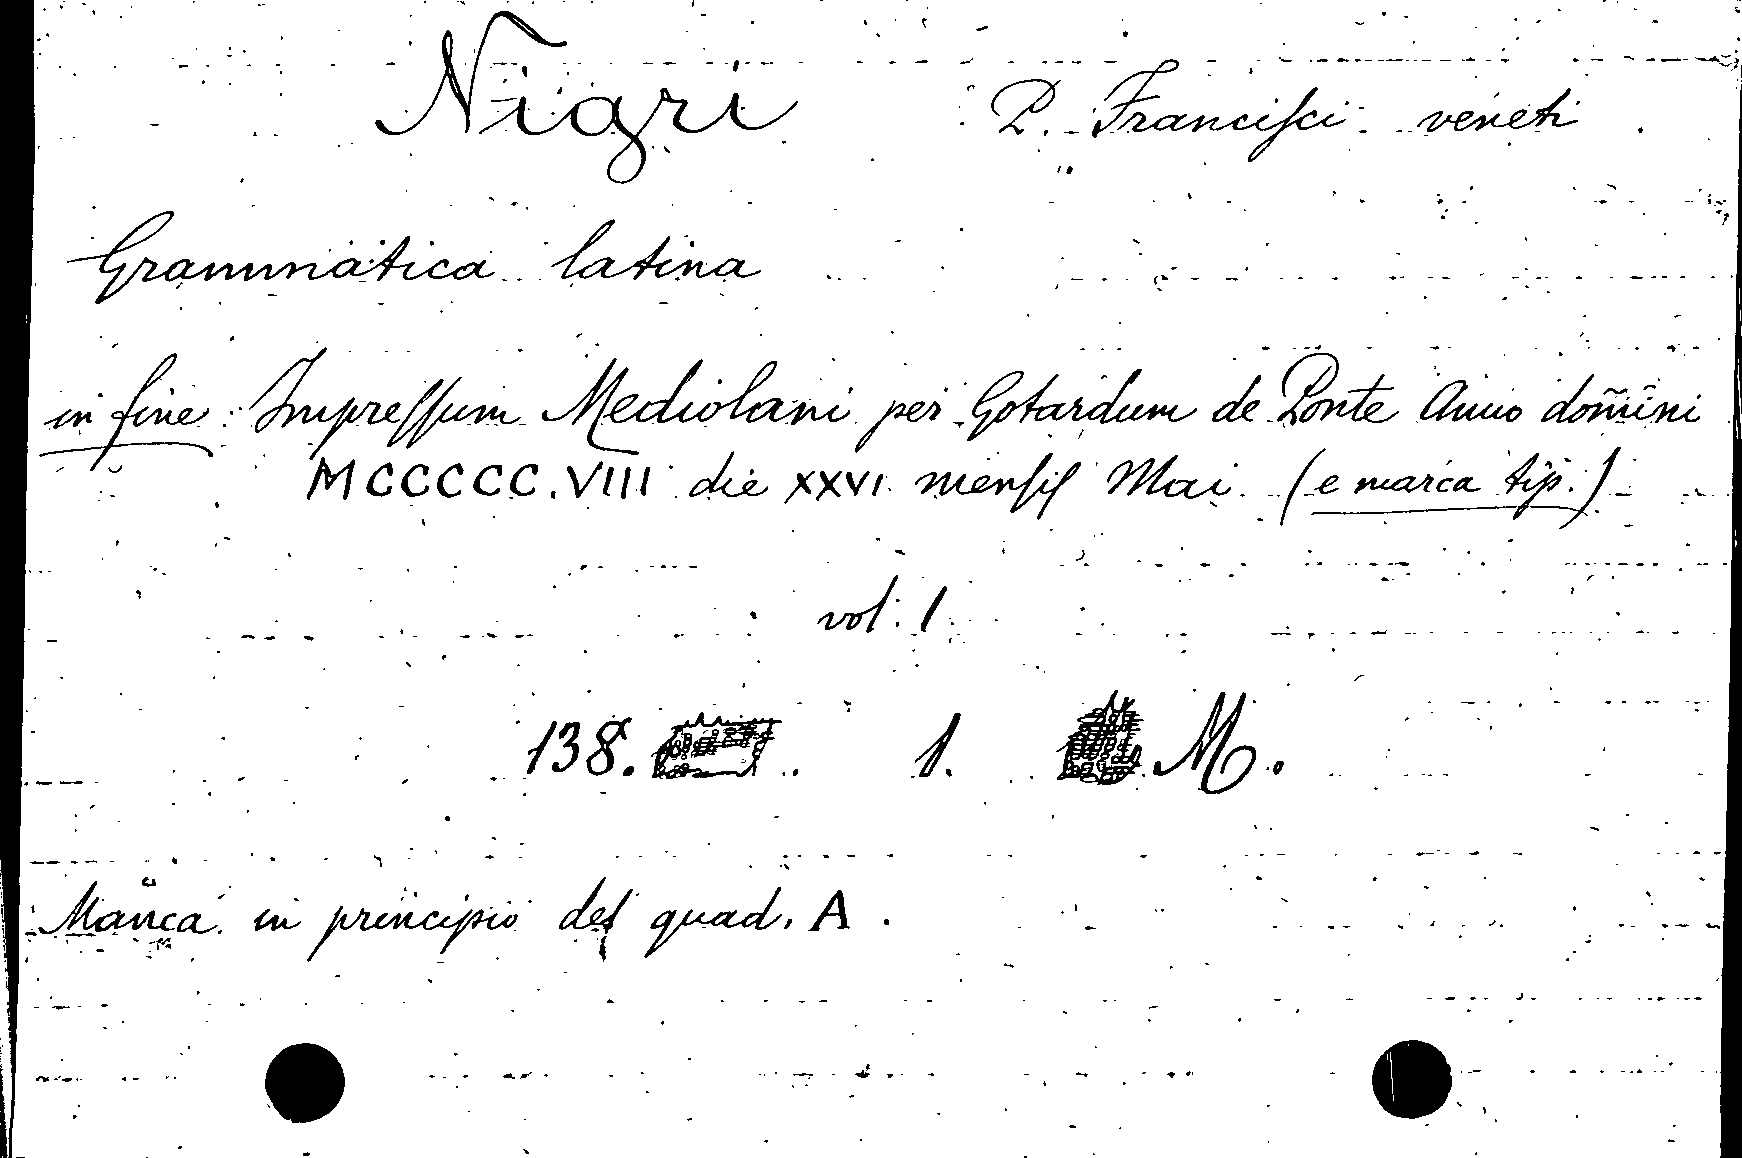 Nigri P. Franciſci veneti
Grammatica latina
in fine: Impreſſum Mediolani per Gotardum de Ponte Anno domini
MCCCCC.VIII die XXVI menſiſ Mai (e marca tip.)
vol. 1
138. 1. M.
Manca in principio del quad. A.